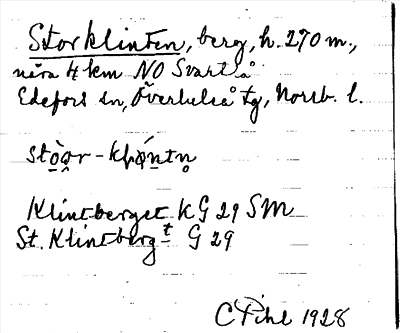 Storklinten, berg, h. 270 m.,
nära 4 km NO Svartlå
Edefors sn, Överluleå tg, Norrb. l.
Klintberget KG 29 SM
St. Klintbergt G 29
C Pihl 1928